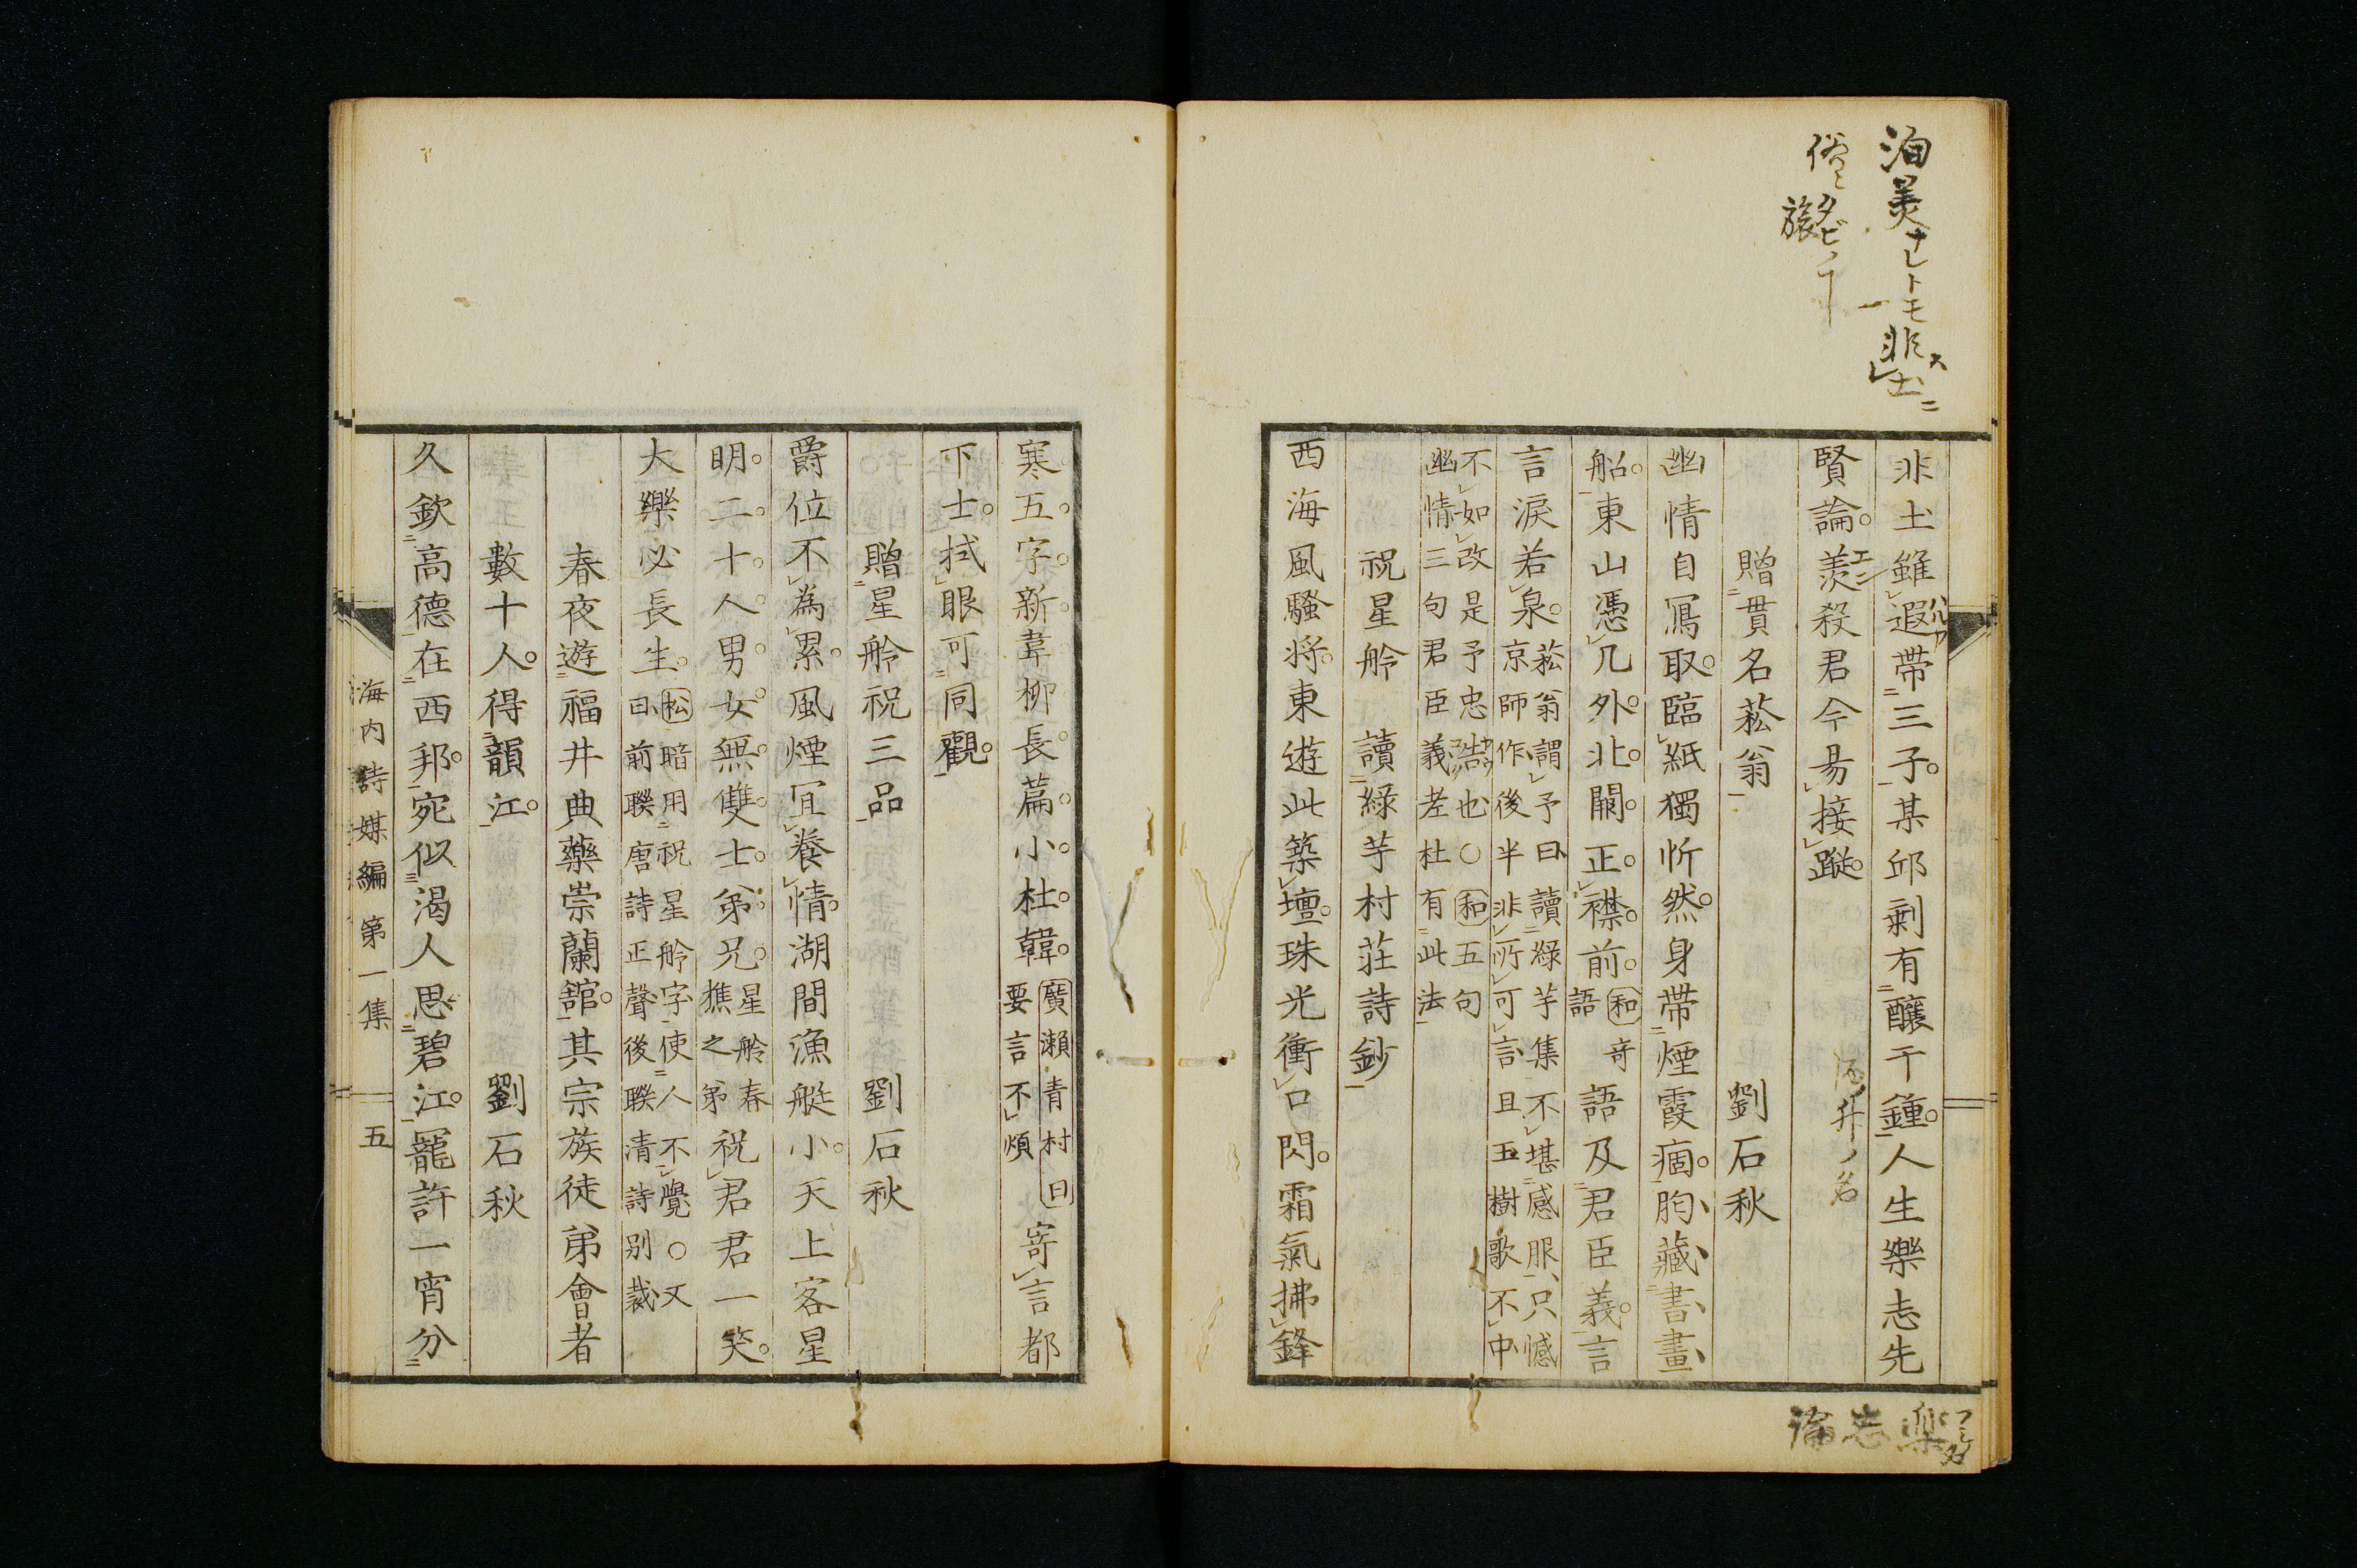 洵美ナレトモ非ス土ニ
俗ニタビノ
旅
非土雖遐帶三子某邱剩有釀千鍾人生樂志先
賢論羨殺君今昜接蹤
贈貫名菘翁 劉石秋
幽情自寫取臨紙獨忻然身帶煙霞痼胸藏書畫
船東山憑几外北闕正襟前和奇語語及君臣義言
言淚若泉菘翁謂予曰讀綠芋集不堪感服只憾
京師作後半非所可言且玉樹歌不中
不如改是予忠告也○和五句
幽情三句君臣義老杜有此法
祝星舲 讀綠芋村莊詩鈔
西海風騷將東遊此築壇珠光衝口閃霜氣拂鋒
樂志論
寒五字新韋柳長篇小杜韓廣瀨青村曰要言不煩寄言都
下士拭眼可同觀
贈星舲祝三品 劉石秋
爵位不為累風煙宜養情湖間漁艇小天上客星
明二十人男女無雙士弟兄星舲春樵之弟祝君君一笑
大樂必長生松暗用祝星舲字使人不覺○又
曰前聯唐詩正聲後聯清詩別裁
春夜遊福井典藥崇蘭館其宗族徒弟會者
數十人得韻江 劉石秋
久欽高德在西邦宛似渴人思碧江寵許一宵分
海内詩媒編第一集 五